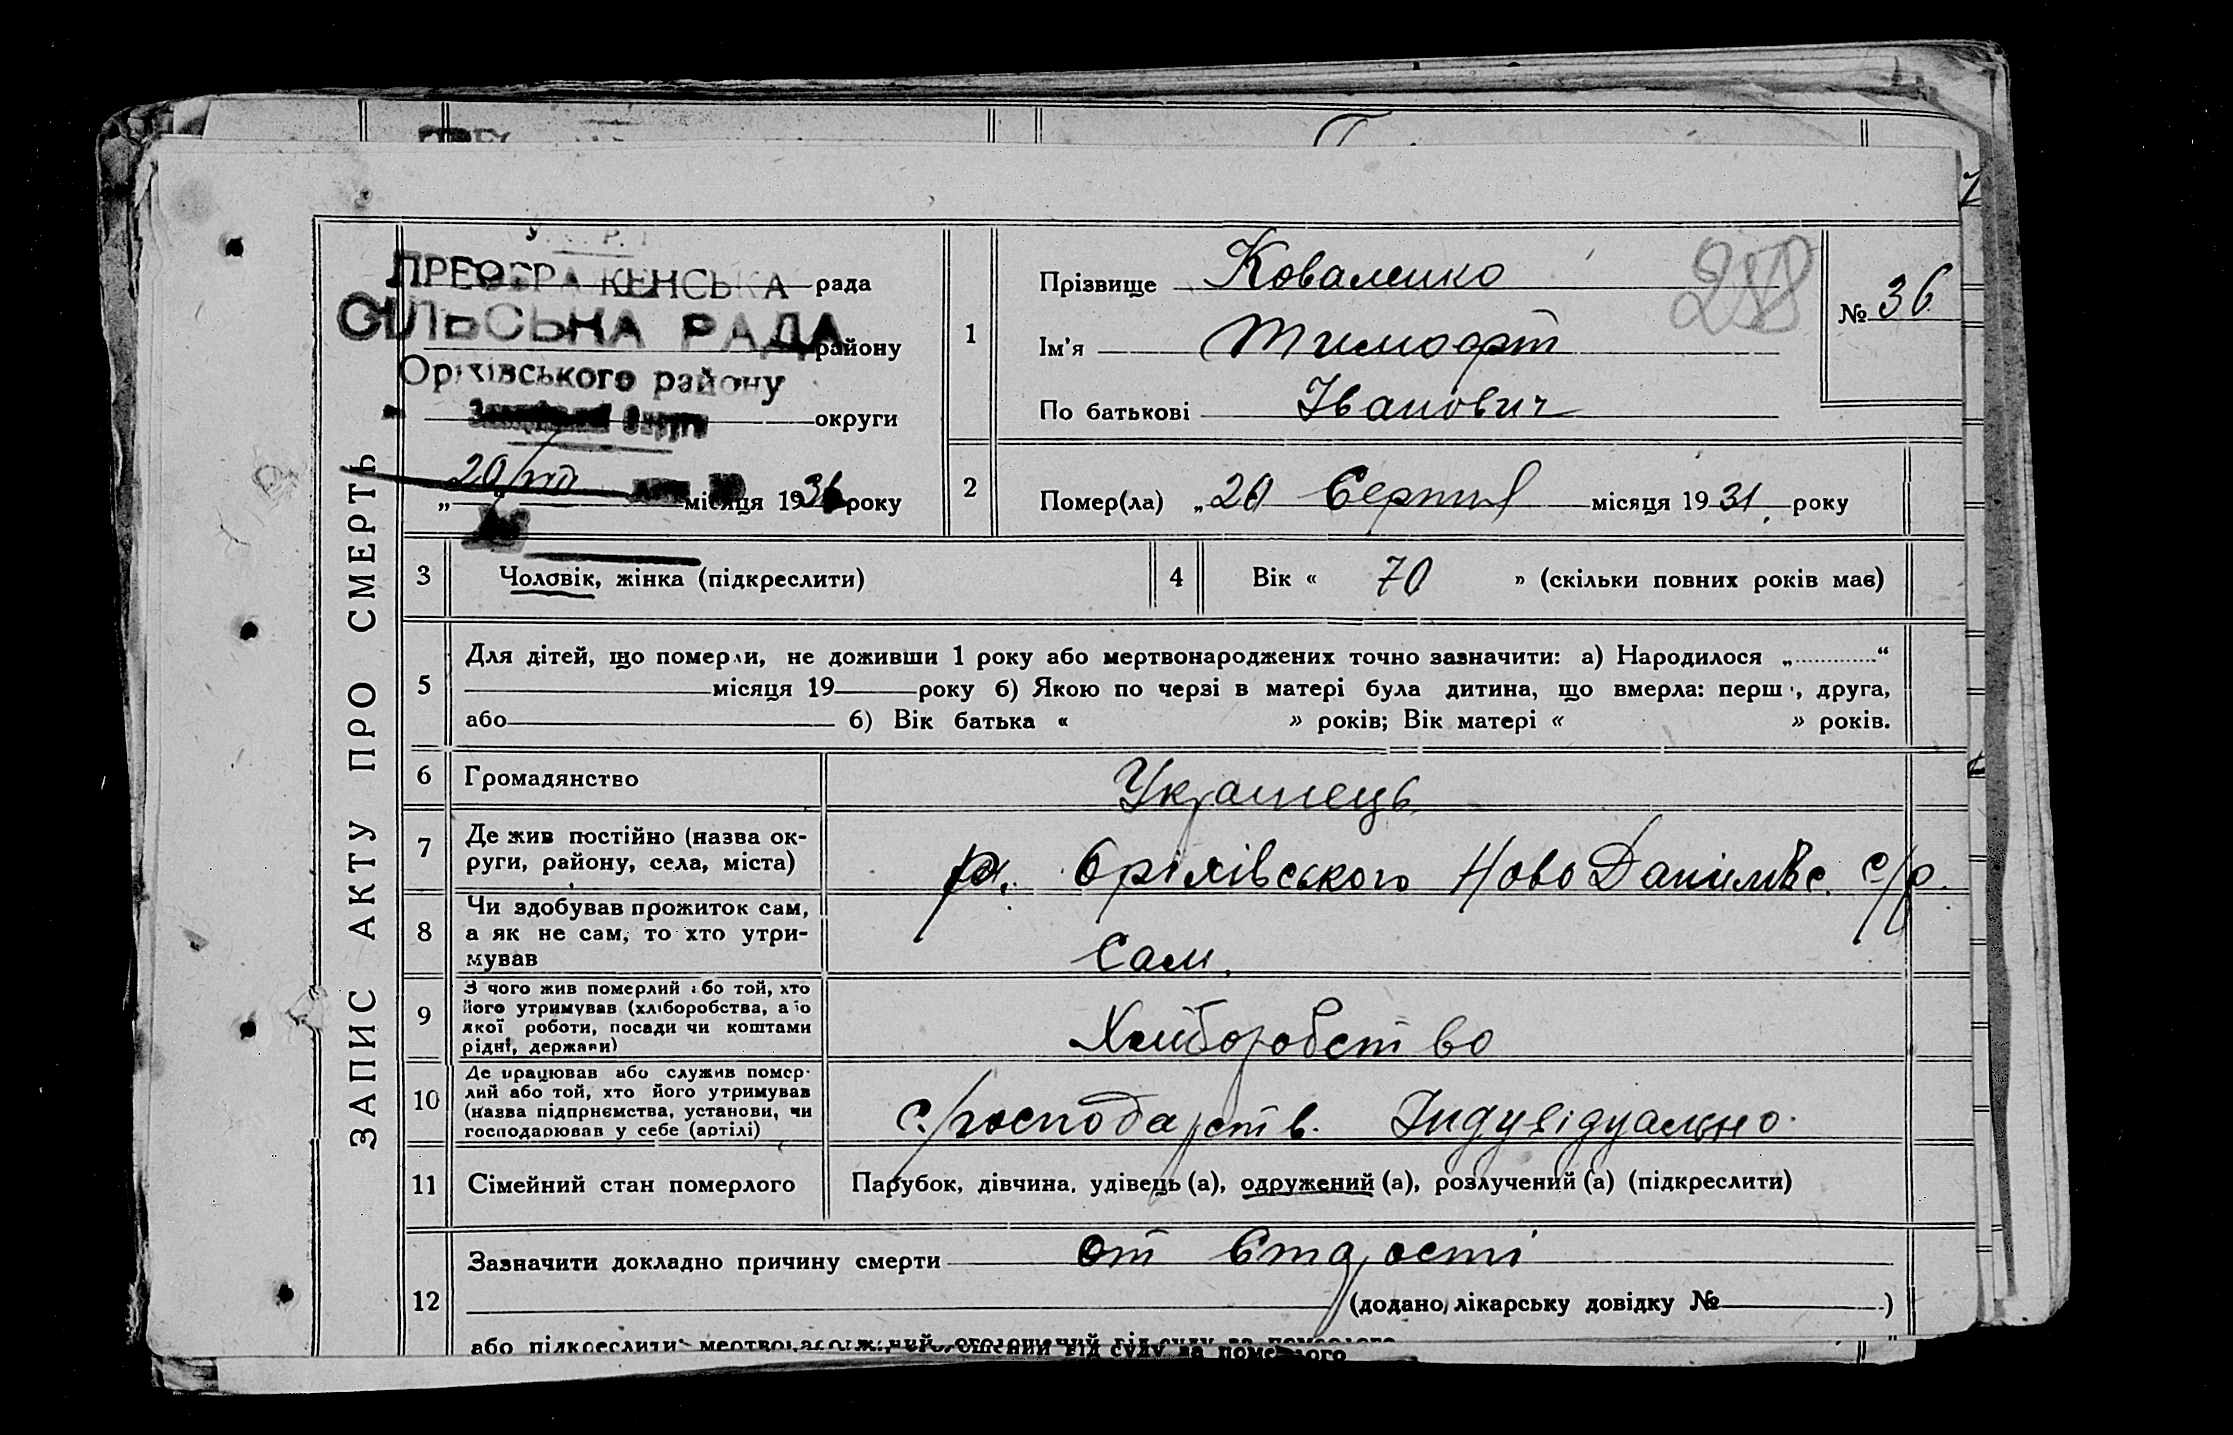 ЗАПИС АКТУ ПРО СМЕРТЬ
ПРЕОБРАЖЕНСЬКА рада
СІЛЬСЬКА РАДА
району
Оріхівського району
Округи округи
„ 20 місяця 1931 року
1
Прізвище Коваленко
Ім'я Тимофт
По батькові Іванович
258
№ 36
2
Помер(ла) „20 Серпня місяця 1931 року
3 Чоловік, жінка (підкреслити)
4 Вік « 70 » (скільки повних років має)
5
Для дітей, що померли, не доживши 1 року або мертвонароджених точно зазначити: а) Народилося „ “
місяця 19 року б) Якою по черзі в матері була дитина, що вмерла: перш, друга,
або б) Вік батька « » років; Вік матері « » років.
6 Громадянство Українець
7
Де жив постійно (назва ок-
руги, району, села, міста)
р. Оріхівського Ново Данилівс. с/р.
8
Чи здобував прожиток сам,
а як не сам, то хто утри-
мував
Сам.
9
З чого жив померлий або той, хто
його утримував (хліборобства, або
якої роботи, посади чи коштами
рідні, держави)
Хліборобство
10
Де працював або служив помер-
лий або той, хто його утримував
(назва підприємства, установи, чи
господарював у себе (артілі)
с/господарств. Індувідуально.
11 Сімейний стан померлого
Парубок, дівчина, удівець (а), одружений (а), розлучений (а) (підкреслити)
12
Зазначити докладно причину смерти от Старості
(додано лікарську довідку № )
або підкреслити